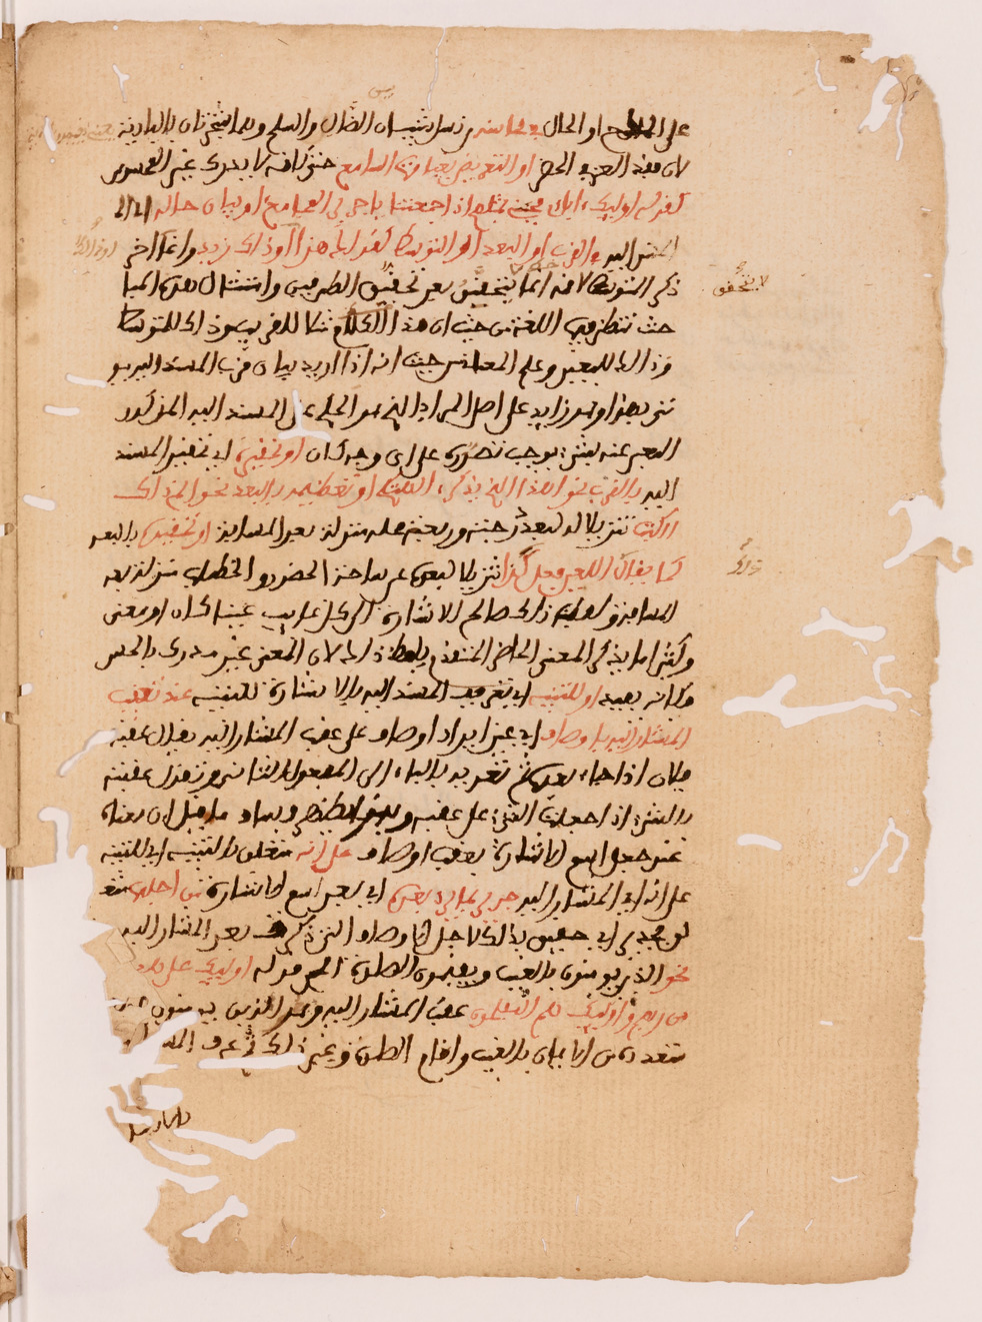 على المدح او الحال في محاسنه من نسل شيبان بين الضال والسلم وهما شجرتان بالبادية
لان فقد العز في الحضر او التعريض بغباوة السامع حتى كانه لا يدرك غير المحسوس
كقوله اوليك ابائي فجئني بمثلهم اذا جمعتنا يا جرير المجامع او بيان حاله اي
المسند اليه في القرب او البعد او التوسط كقولك هذا او ذاك زيد واخر
ذكر التوسط لانه انما يتحقق بعد تحقق الطرفين وامثال هذه المبا
حث تنظر فيها اللغة من حيث ان هذا مثلا للقريب وذاك للمتوسط
وذلك للبعيد وعلم المعاني من حيث انه اذا اريد بيان قرب المسند اليه يو
تى بهذا وهو زايد على اصل المراد الذي هو الحكم على المسند اليه المذكور
المعبر عنه بشيء يوجب تصوره على اي وجه كان او تحقيره اي تحقير المسند
اليه بالقرب نحو اهذا الذي يذكر الهتكم او تعظيمه بالبعد نحو الم ذلك
الكتاب تنزيلا لبعد درجته ورفعة محله منزلة بعد المسافة او تحقيره بالبعد
كما يقال ذلك اللعين فعل كذا تنزيلا لبعده عن ساحة الحضور والخطاب منزلة بعد
المسافة ولفظ ذلك صالح للاشارة الى كل غايب عينا كان او معنى
وكثيرا ما يذكر المعنى الحاضر المتقدم بلفظ ذلك لان المعنى غير مدرك بالحس
فكانه بعيد او للتنبيه اي تعريف المسند اليه بالاشارة للتنبيه عند تعقيب
المشار اليه باوصاف اي عند ايراد اوصاف على عقب المشار اليه يقال عقبه
فلان اذا جاء بعده ثم تعديه بالباء الى المفعول الثاني وتقول عقبته
بالشيء اذا جعلت الشيء على عقبه وبهذا ظهر فساد ما قيل ان معناه
عند جعل اسم الاشارة بعقب اوصاف على انه متعلق بالتنبيه اي للتنبيه
على انه اي المشار اليه جدير بما يرد بعده اي بعد اسم الاشارة من اجلها متعلق
بجدير اي حقيق بذلك لاجل الاوصاف التي ذكرت بعد المشار اليه
نحو الذين يومنون بالغيب ويقيمون الصلوة الى قوله اوليك على هدى
من ربهم واوليك هم المفلحون عقب المشار اليه وهو الذين يومنون
متعددة من الايمان بالغيب واقام الصلوة وغير ذلك ثم عرف المسند